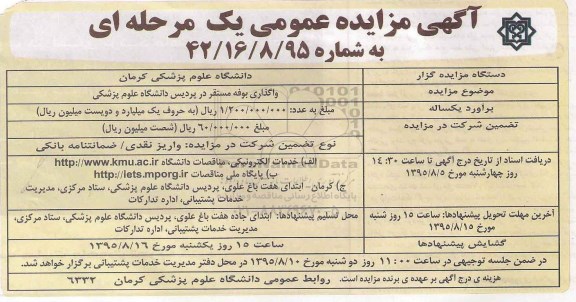 آگهی مزایده عمومی یک مرحله ای
به شماره ۴۲/۱۶/۸/۹۵
دستگاه مزایده گزار
دانشگاه علوم پزشکی کرمان
موضوع مزایده
واگذاری بوفه مستقر در پردیس دانشگاه علوم پزشکی
برآورد یکساله
مبلغ به عدد: ۱/۲۰۰/۰۰۰/۰۰۰ ریال (به حروف یک میلیارد و دویست میلیون ریال)
تضمین شرکت در مزایده
مبلغ ۶۰/۰۰۰/۰۰۰ ریال (شصت میلیون ریال)
نوع تضمین شرکت در مزایده: واریز نقدی/ ضمانتنامه بانکی
دریافت اسناد از تاریخ درج آگهی تا ساعت ۱۴:۳۰
روز چهارشنبه مورخ ۱۳۹۵/۸/۵
الف) خدمات الکترونیکی، مناقصات دانشگاه http://www.kmu.ac.ir
ب) پایگاه ملی مناقصات http://iets.mporg.ir
ج) کرمان- ابتدای هفت باغ علوی، پردیس دانشگاه علوم پزشکی، ستاد مرکزی، مدیریت
خدمات پشتیبانی، اداره تدارکات
آخرین مهلت تحویل پیشنهادها: ساعت ۱۵ روز شنبه
مورخ ۱۳۹۵/۸/۱۵
محل تسلیم پیشنهادها: ابتدای جاده هفت باغ علوی، پردیس دانشگاه علوم پزشکی، ستاد مرکزی،
مدیریت خدمات پشتیبانی، اداره تدارکات
گشایش پیشنهادها
ساعت ۱۵ روز یکشنبه مورخ ۱۳۹۵/۸/۱۶
در ضمن جلسه توجیهی در ساعت ۱۱:۰۰ روز دو شنبه مورخ ۱۳۹۵/۸/۱۰ در محل دفتر مدیریت خدمات پشتیبانی برگزار خواهد شد.
هزینه ی درج آگهی بر عهده ی برنده مزایده است. روابط عمومی دانشگاه علوم پزشکی کرمان ۶۳۳۲